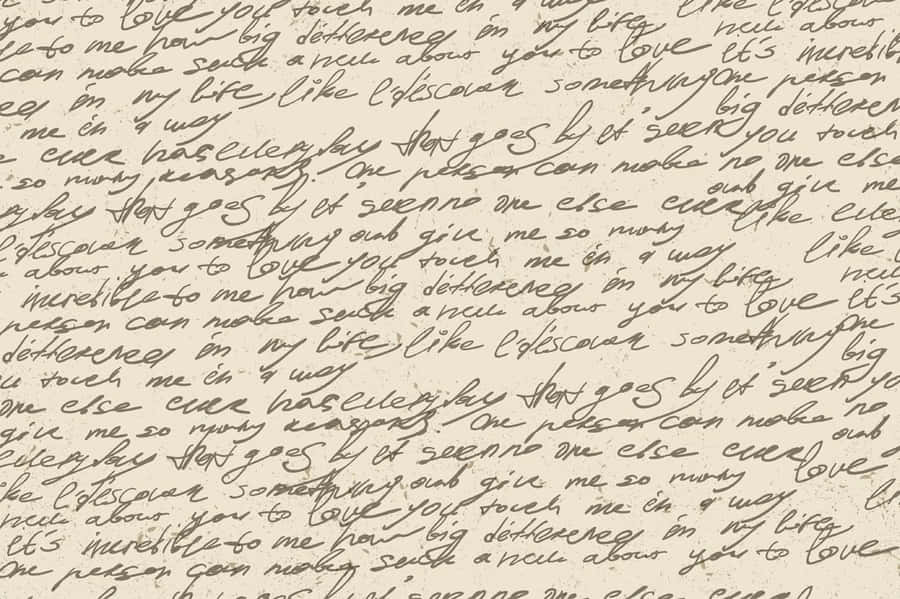 you to love you touch me in a way like I discover
to me how big difference in my life new about
can make such a new about you to love It's incredible
in my life, like I discover something One person
me in a way big difference
ever has every day that goes by it's seen you touch
so many reasons. One person can make no one else
day that goes by it seen no one else ever and give me
like every
I discover something and give me so many like
about you to love you touch me in a way new
incredible to me how big difference in my life
person can make such a new about you to love It's
difference in my life, like I discover something One
touch me in a way big
one else ever has every day that goes by it's seen you
give me so many reasons. One person can make no
every day that goes by it seen no one else ever and
like I discover something and give me so many love
new about you to love you touch me in a way
It's incredible to me how big difference in my life
One person can make such a new about you to love